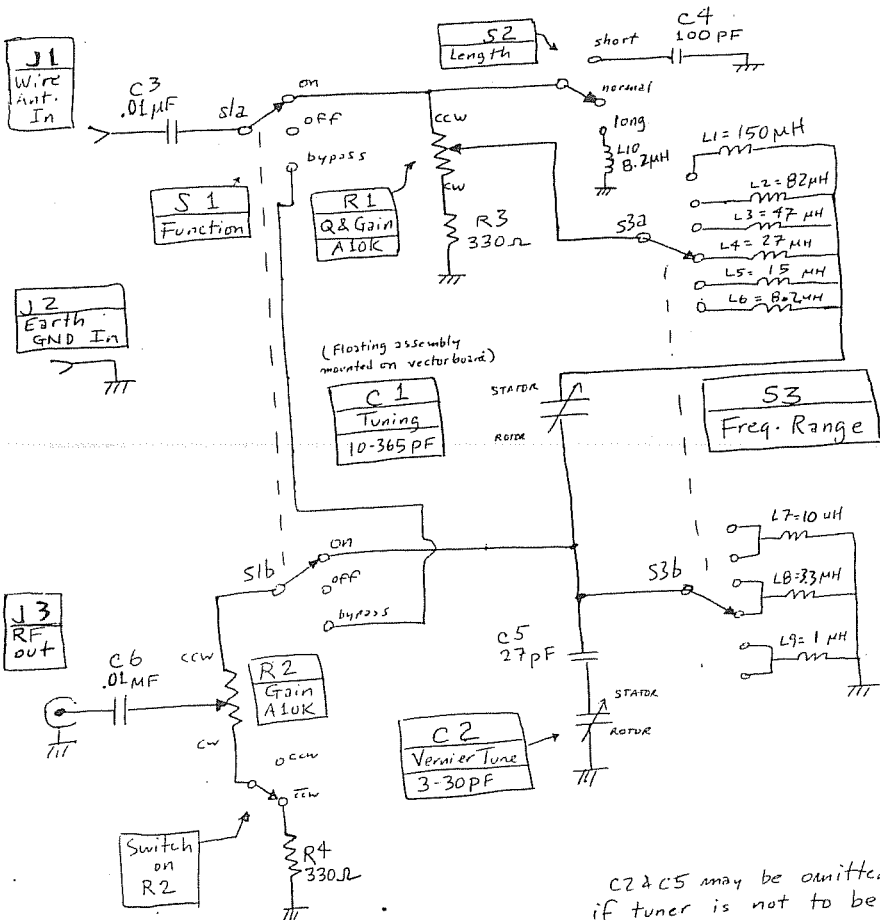 J1
Wire
Ant.
In
C3
.01µF
S1a
on
off
bypass
S1
Function
S2
Length
short
C4
100 PF
normal
long
L10
8.2µH
CCW
CW
R1
Q & Gain
A10K
R3
330Ω
S3a
L1 = 150 µH
L2 = 82µH
L3 = 47 µH
L4 = 27 µH
L5 = 15 µH
L6 = 8.2µH
J2
Earth
GND In
(Floating assembly
mounted on vectorboard)
C1
Tuning
10-365 PF
STATOR
ROTOR
S3
Freq. Range
S1b
on
off
bypass
S3b
L7=10 uH
L8=3.3 µH
L9= 1 µH
J3
RF
out
C6
.01 MF
CCW
CW
R2
Gain
A10K
C5
27pF
C2
Vernier Tune
3-30pF
STATOR
ROTOR
CCW
C̅C̅W̅
Switch
on
R2
R4
330Ω
C2 & C5 may be omitted
if tuner is not to be